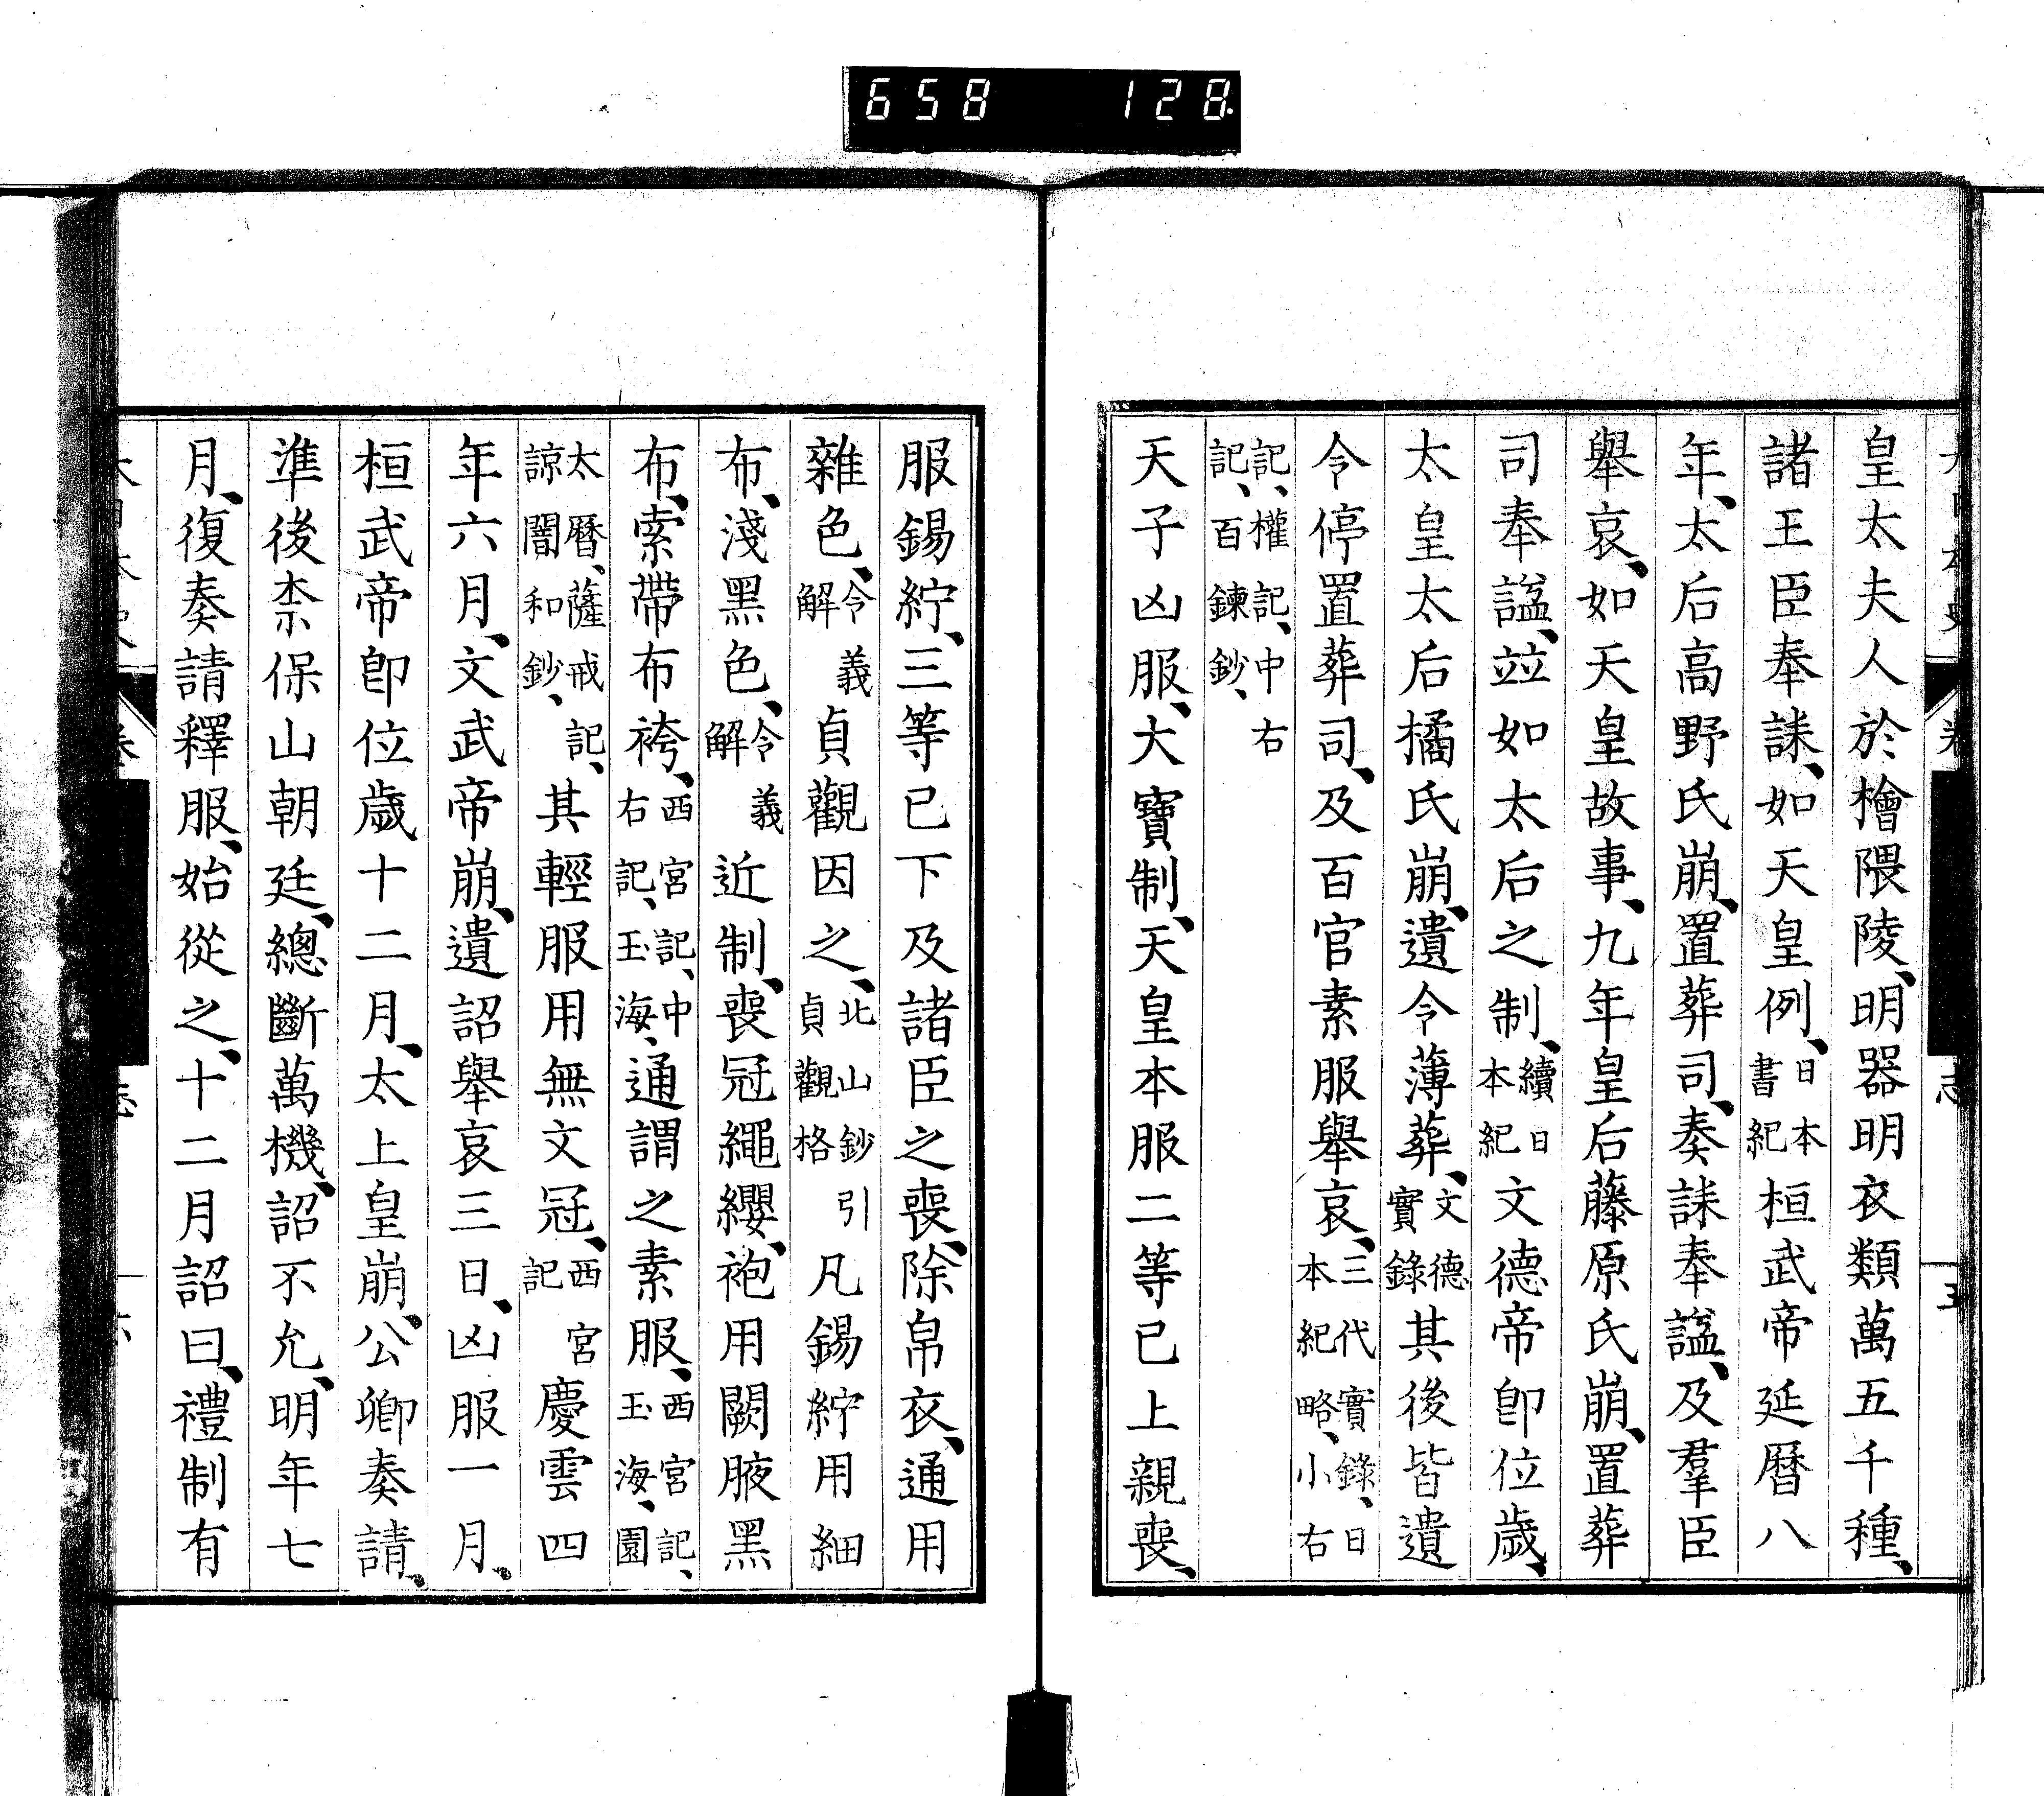 658 128
皇太夫人於檜隈陵、明器明衣類萬五千種、
諸王臣奉誄、如天皇例、日本書紀桓武帝延曆八
年、太后高野氏崩、置葬司、奏誄奉諡、及羣臣
舉哀、如天皇故事、九年皇后藤原氏崩、置葬
司奉諡、竝如太后之制、續日本紀文德帝卽位歲、
太皇太后橘氏崩、遺令薄葬、文德實錄其後皆遺
令停置葬司、及百官素服舉哀、三代實錄、日本紀略、小右
記、權記、中右記、百鍊鈔、
天子凶服、大寶制、天皇本服二等已上親喪、
服錫紵、三等已下及諸臣之喪、除帛衣、通用
雜色、令義解貞觀因之、北山鈔引貞觀格凡錫紵用細
布、淺黑色、令義解近制、喪冠繩纓、袍用闕腋黑
布、索帶布袴、西宮記、中右記、玉海、通謂之素服、西宮記、玉海、園
太曆、薩戒記、諒闇和鈔、其輕服用無文冠、西宮記慶雲四
年六月、文武帝崩、遺詔舉哀三日、凶服一月、
桓武帝卽位歲十二月、太上皇崩、公卿奏請、
準後柰保山朝廷、總斷萬機、詔不允、明年七
月、復奏請釋服、始從之、十二月詔曰、禮制有